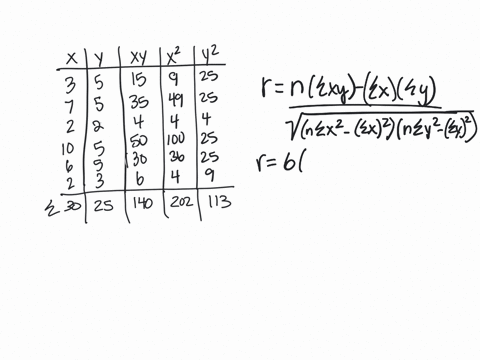 x y xy x² y²
3 5 15 9 25
7 5 35 49 25
2 2 4 4 4
10 5 50 100 25
6 5 30 36 25
2 3 6 4 9
Σ 30 25 140 202 113
r = n(Σxy) - (Σx)(Σy)
√(nΣx² - (Σx)²)(nΣy² - (Σy)²)
r = 6(